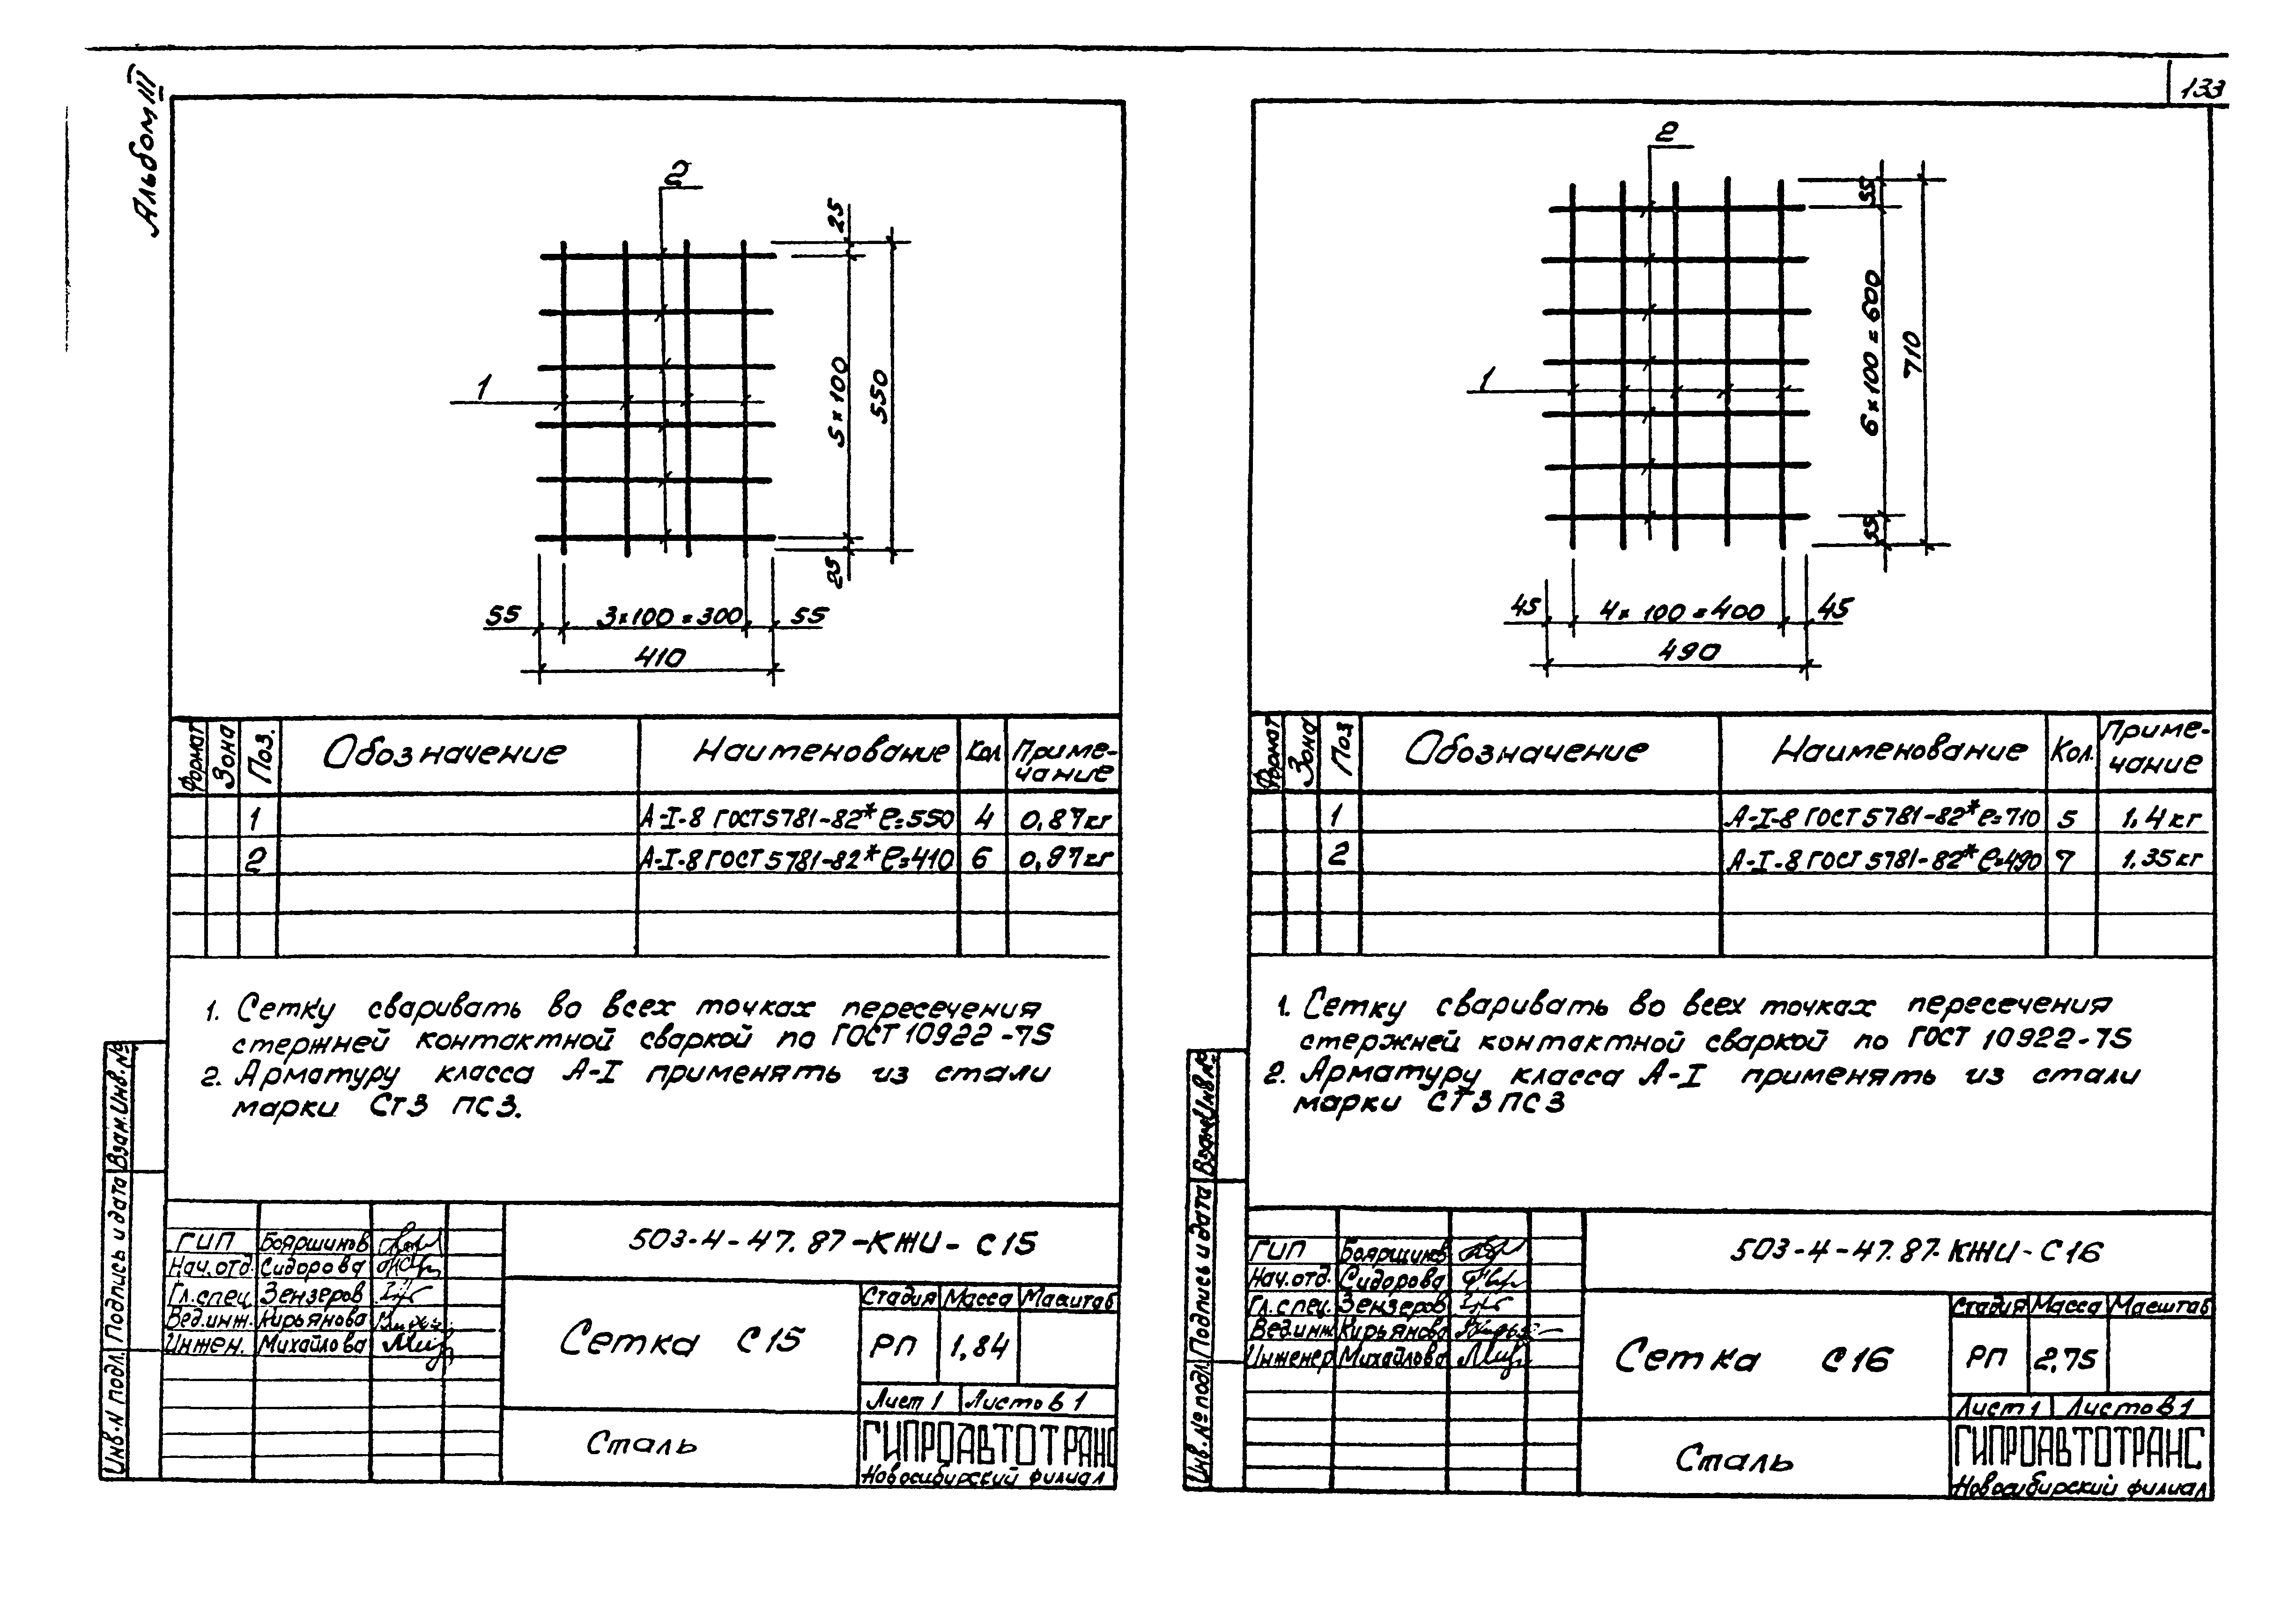 Альбом III
133
2
1
25
5×100
550
25
55
3×100=300
55
410
Формат
Зона
Поз.
Обозначение
Наименование
Кол
Приме-
чание
1 А-I-8 ГОСТ 5781-82* ℓ=550 4 0,87кг
2 А-I-8 ГОСТ 5781-82* ℓ=410 6 0,97кг
1. Сетку сваривать во всех точках пересечения
стержней контактной сваркой по ГОСТ 10922-75
2. Арматуру класса А-I применять из стали
марки Ст3 пс3.
Взам.Инв.№
Подпись и дата
Инв.N подл.
ГИП Бояршинов
Нач.отд. Сидорова
Гл.спец. Зензеров
Вед.инж. Кирьянова
Инжен. Михайлова
503-4-47.87-КЖИ-С15
Сетка С15
Стадия Масса Масштаб
РП 1,84
Лист 1 Листов 1
Сталь
ГИПРОАВТОТРАНС
Новосибирский филиал
2
1
55
6×100=600
710
55
45
4×100=400
45
490
Формат
Зона
Поз
Обозначение
Наименование
Кол.
Приме-
чание
1 А-I-8 ГОСТ 5781-82* ℓ=710 5 1,4кг
2 А-I-8 ГОСТ 5781-82* ℓ=490 7 1,35кг
1. Сетку сваривать во всех точках пересечения
стержней контактной сваркой по ГОСТ 10922-75
2. Арматуру класса А-I применять из стали
марки СТ3ПС3
Взам.Инв.№
Подпись и дата
Инв.№ подл.
ГИП Бояршинов
Нач.отд. Сидорова
Гл.спец. Зензеров
Вед.инж Кирьянова
Инженер Михайлова
503-4-47.87-КЖИ-С16
Сетка С16
Стадия Масса Масштаб
РП 2,75
Лист 1 Листов 1
Сталь
ГИПРОАВТОТРАНС
Новосибирский филиал